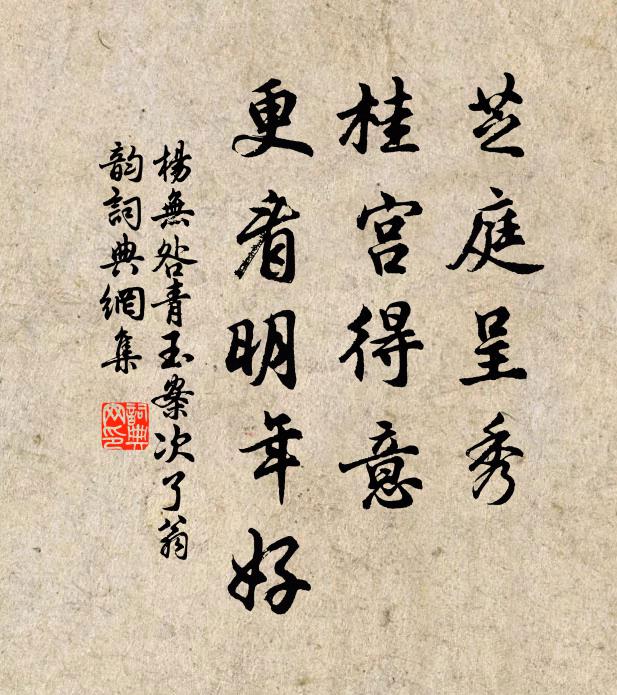 芝庭呈秀
桂宮得意
更看明年好
楊無咎青玉案次了翁
韵詞典網集
詞典網印